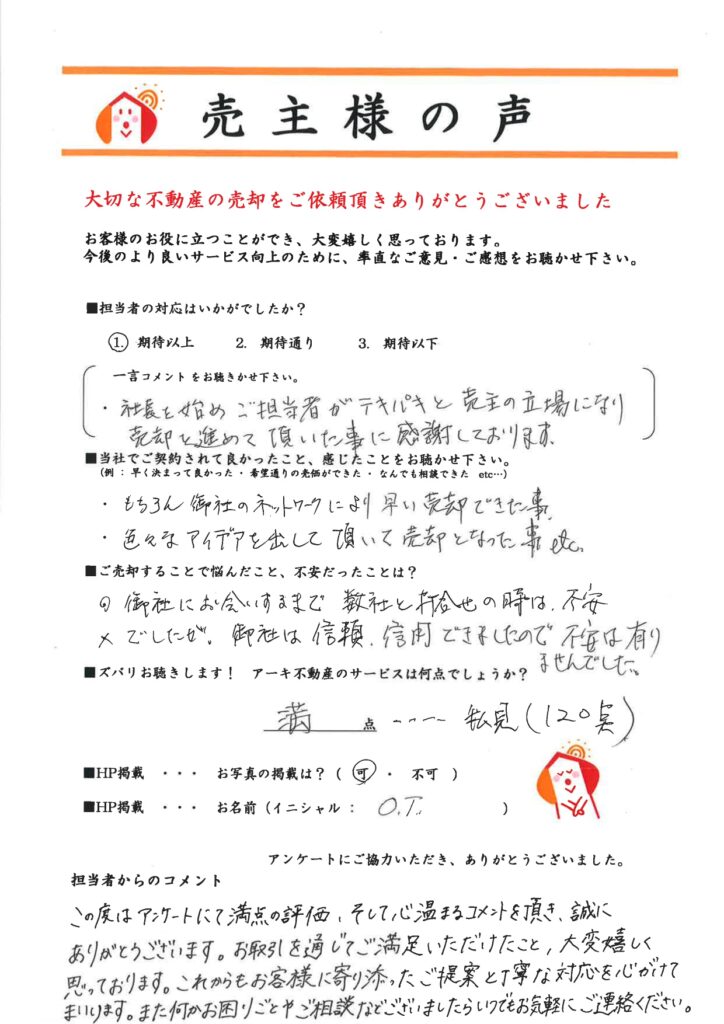 売主様の声
大切な不動産の売却をご依頼頂きありがとうございました
お客様のお役に立つことができ、大変嬉しく思っております。
今後のより良いサービス向上のために、率直なご意見・ご感想をお聴かせ下さい。
■担当者の対応はいかがでしたか？
1. 期待以上　2. 期待通り　3. 期待以下
一言コメントをお聴きかせ下さい。
・社長を始めご担当者がテキパキと売主の立場になり
売却を進めて頂いた事に感謝しております。
■当社でご契約されて良かったこと、感じたことをお聴かせ下さい。
(例：早く決まって良かった・希望通りの売価ができた・なんでも相談できた etc…)
・もちろん御社のネットワークにより早い売却できた事。
・色々なアイデアを出して頂いて売却となった事etc.
■ご売却することで悩んだこと、不安だったことは？
御社にお会いするまで数社と打合せの時は、不安
でしたが。御社は信頼、信用できましたので不安は有り
ませんでした。
■ズバリお聴きします！　アーキ不動産のサービスは何点でしょうか？
満点 ---- 私見(120点)
■HP掲載　・・・　お写真の掲載は？（ 可 ・ 不可 ）
■HP掲載　・・・　お名前（イニシャル： O.T. ）
アンケートにご協力いただき、ありがとうございました。
担当者からのコメント
この度はアンケートにて満点の評価、そして心温まるコメントを頂き、誠に
ありがとうございます。お取引を通じてご満足いただけたこと、大変嬉しく
思っております。これからもお客様に寄り添ったご提案と丁寧な対応を心がけて
まいります。また何かお困りごとやご相談などございましたらいつでもお気軽にご連絡ください。